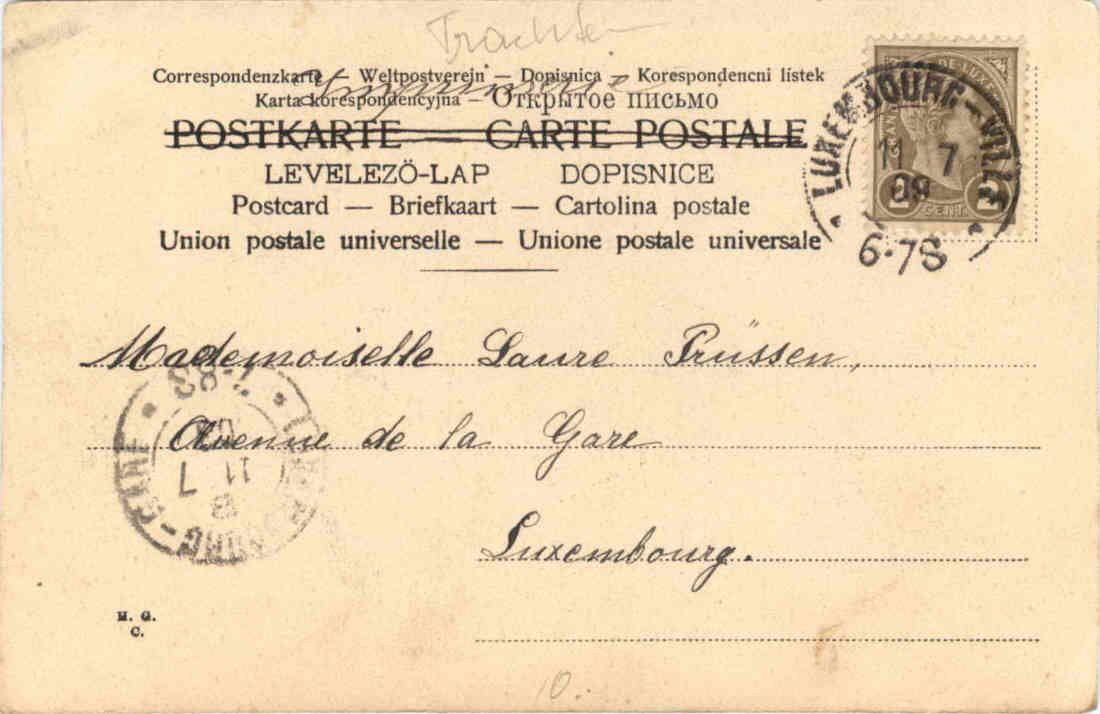 Trachten
Correspondenzkarte — Weltpostverein — Dopisnica — Korespondencni lístek
Karta korespondencyjna — Открытое письмо
Imprimés
POSTKARTE — CARTE POSTALE
LEVELEZÖ-LAP DOPISNICE
Postcard — Briefkaart — Cartolina postale
Union postale universelle — Unione postale universale
DE LUX
CENT.
LUXEMBOURG-VILLE
11 7
09
6-7S
Mademoiselle Laure Prüssen,
Avenue de la Gare
Luxembourg.
LUXEMBOURG-GARE
7-8S
11 7
M. G.
C.
10.